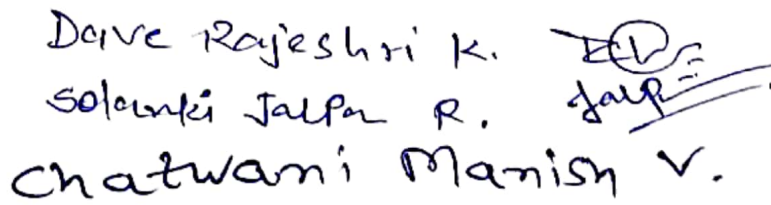 Dave Rajeshri K.
Solanki Jalpa R. Jalp
Chatwani Manish V.